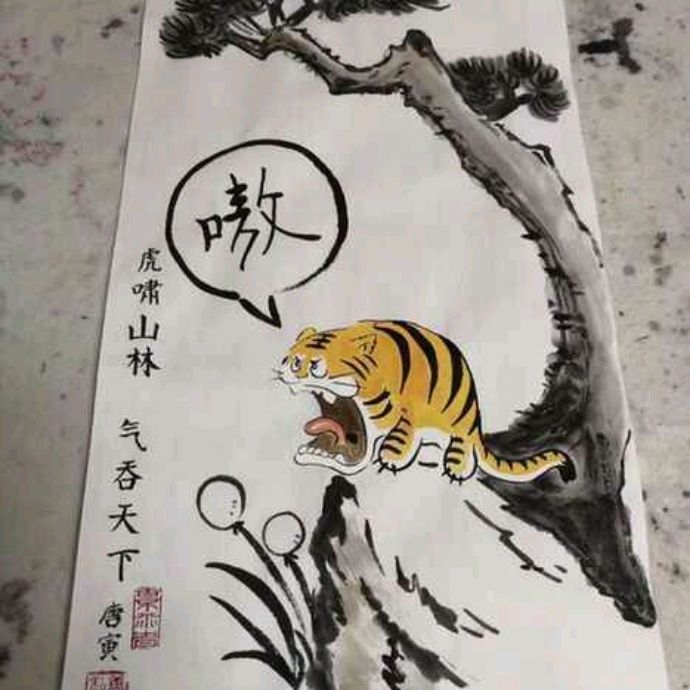 嗷
虎啸山林 气吞天下 唐寅